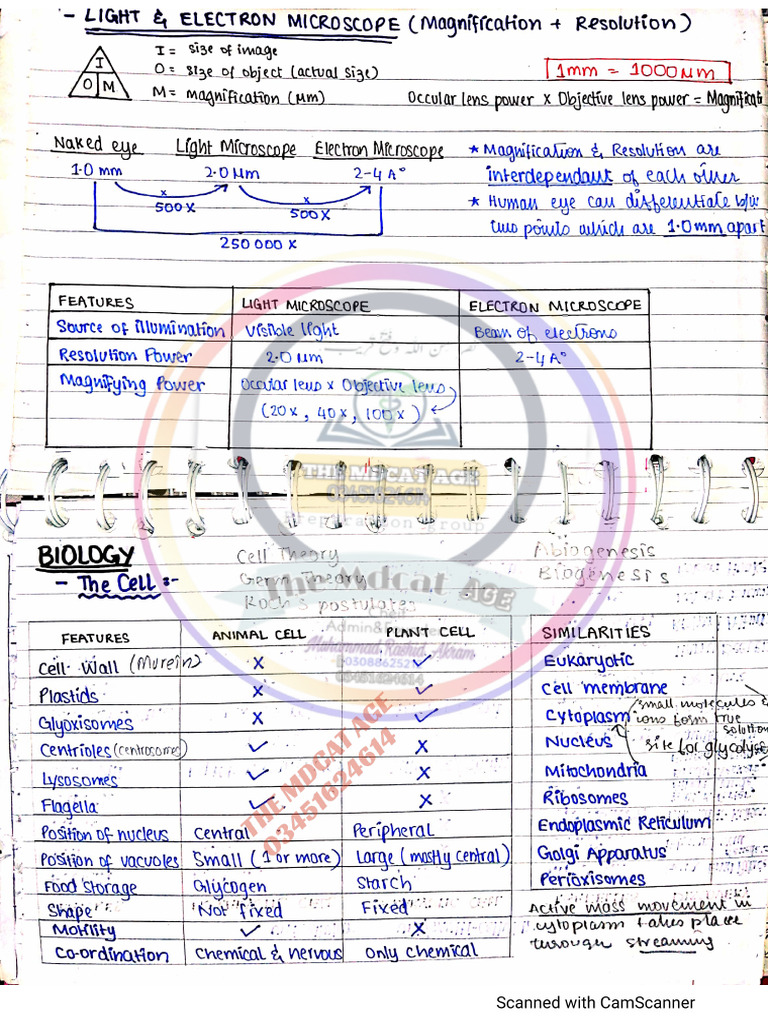 - LIGHT & ELECTRON MICROSCOPE (Magnification + Resolution)
I = size of image
O = size of object (actual size)
M = magnification (µm)
I
O M
1mm = 1000µm
Occular lens power x Objective lens power = Magnificati
Naked eye Light Microscope Electron Microscope
1.0 mm 2.0 µm 2-4 A°
x x
500x 500x
250000 x
* Magnification & Resolution are
interdependant of each other
* Human eye can differentiate b/w
two points which are 1.0mm apart
FEATURES LIGHT MICROSCOPE ELECTRON MICROSCOPE
Source of illumination Visible light Beam of electrons
Resolution Power 2.0 µm 2-4 A°
Magnifying Power Occular lens x Objective lens
(20x, 40x, 100x)
THE MDCAT AGE
03451624614
Preparation group
BIOLOGY
- The Cell :-
Cell Theory
Germ Theory
Koch's postulates
Abiogenesis
Biogenesis
The Mdcat AGE
Admin&
Muhammad Rashid Akram
03451624614
FEATURES ANIMAL CELL PLANT CELL
Cell Wall (Murein) X ✓
Plastids X ✓
Glyoxisomes X ✓
Centrioles (centrosomes) ✓ X
Lysosomes ✓ X
Flagella ✓ X
Position of nucleus Central Peripheral
Position of vacuoles Small (1 or more) Large (mostly central)
Food Storage Glycogen Starch
Shape Not fixed Fixed
Motility ✓ X
Co-ordination chemical & nervous only chemical
THE MDCAT AGE
03451624614
SIMILARITIES
Eukaryotic
Cell membrane
Cytoplasm
small molecules &
ions form true
solution
Nucleus
site for glycolysis
Mitochondria
Ribosomes
Endoplasmic Reticulum
Golgi Apparatus
Perioxisomes
Active mass movement in
cytoplasm takes place
through streaming
Scanned with CamScanner